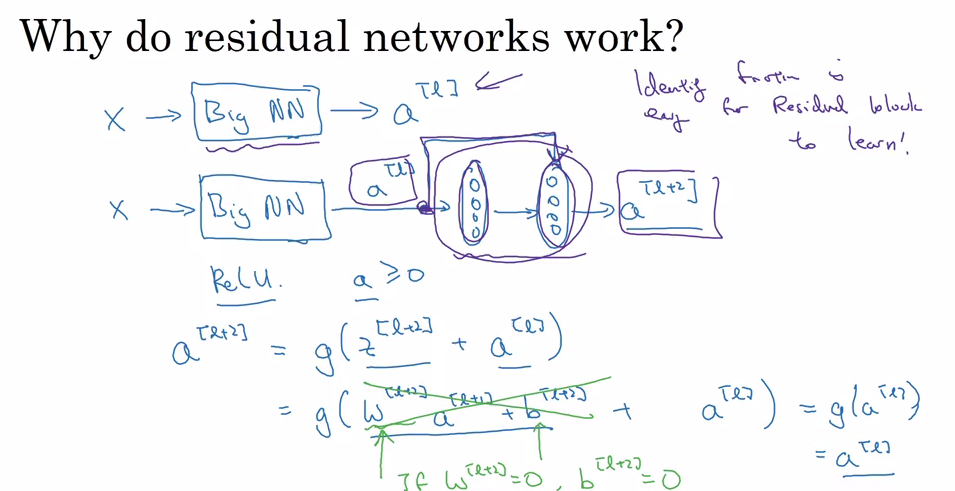 Why do residual networks work?
X → Big NN → a^[l]
Identity function is
easy for Residual block
to learn!
X → Big NN a^[l] → → a^[l+2]
ReLU. a ≥ 0
a^[l+2] = g(z^[l+2] + a^[l])
= g(w^[l+2] a^[l+1] + b^[l+2] + a^[l]) = g(a^[l])
= a^[l]
If w^[l+2] = 0, b^[l+2] = 0